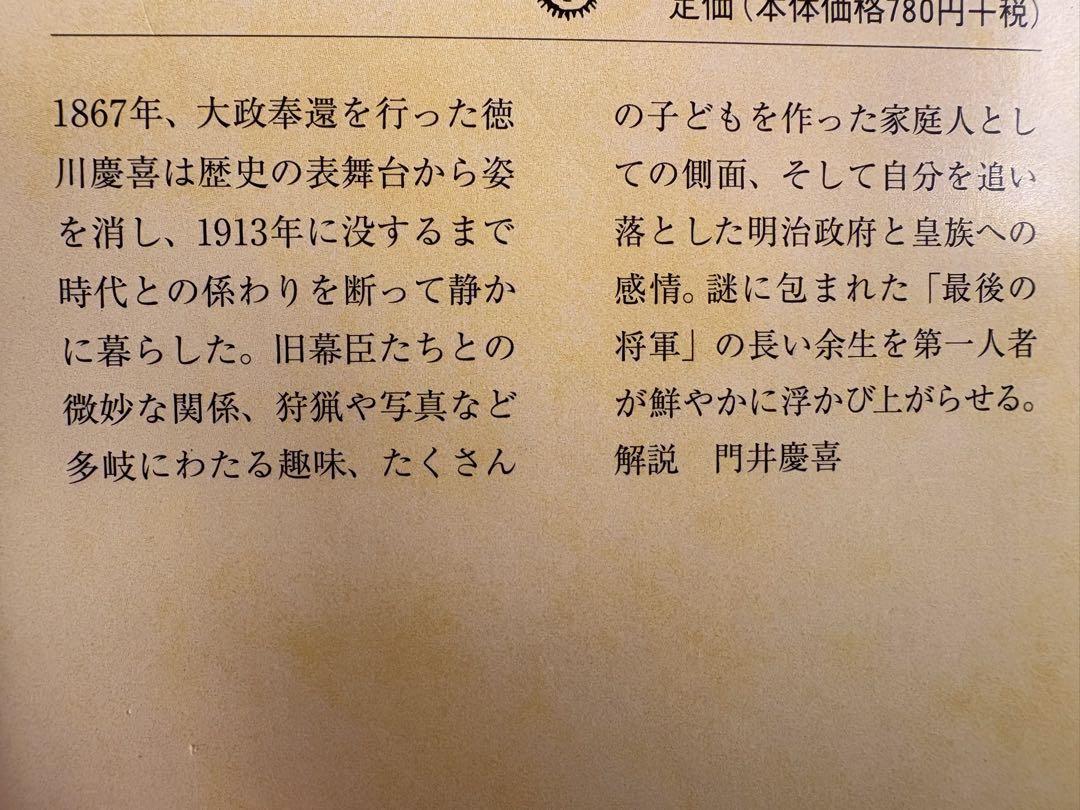 定価(本体価格780円+税)
1867年、大政奉還を行った徳
川慶喜は歴史の表舞台から姿
を消し、1913年に没するまで
時代との係わりを断って静か
に暮らした。旧幕臣たちとの
微妙な関係、狩猟や写真など
多岐にわたる趣味、たくさん
の子どもを作った家庭人とし
ての側面、そして自分を追い
落とした明治政府と皇族への
感情。謎に包まれた「最後の
将軍」の長い余生を第一人者
が鮮やかに浮かび上がらせる。
解説　門井慶喜